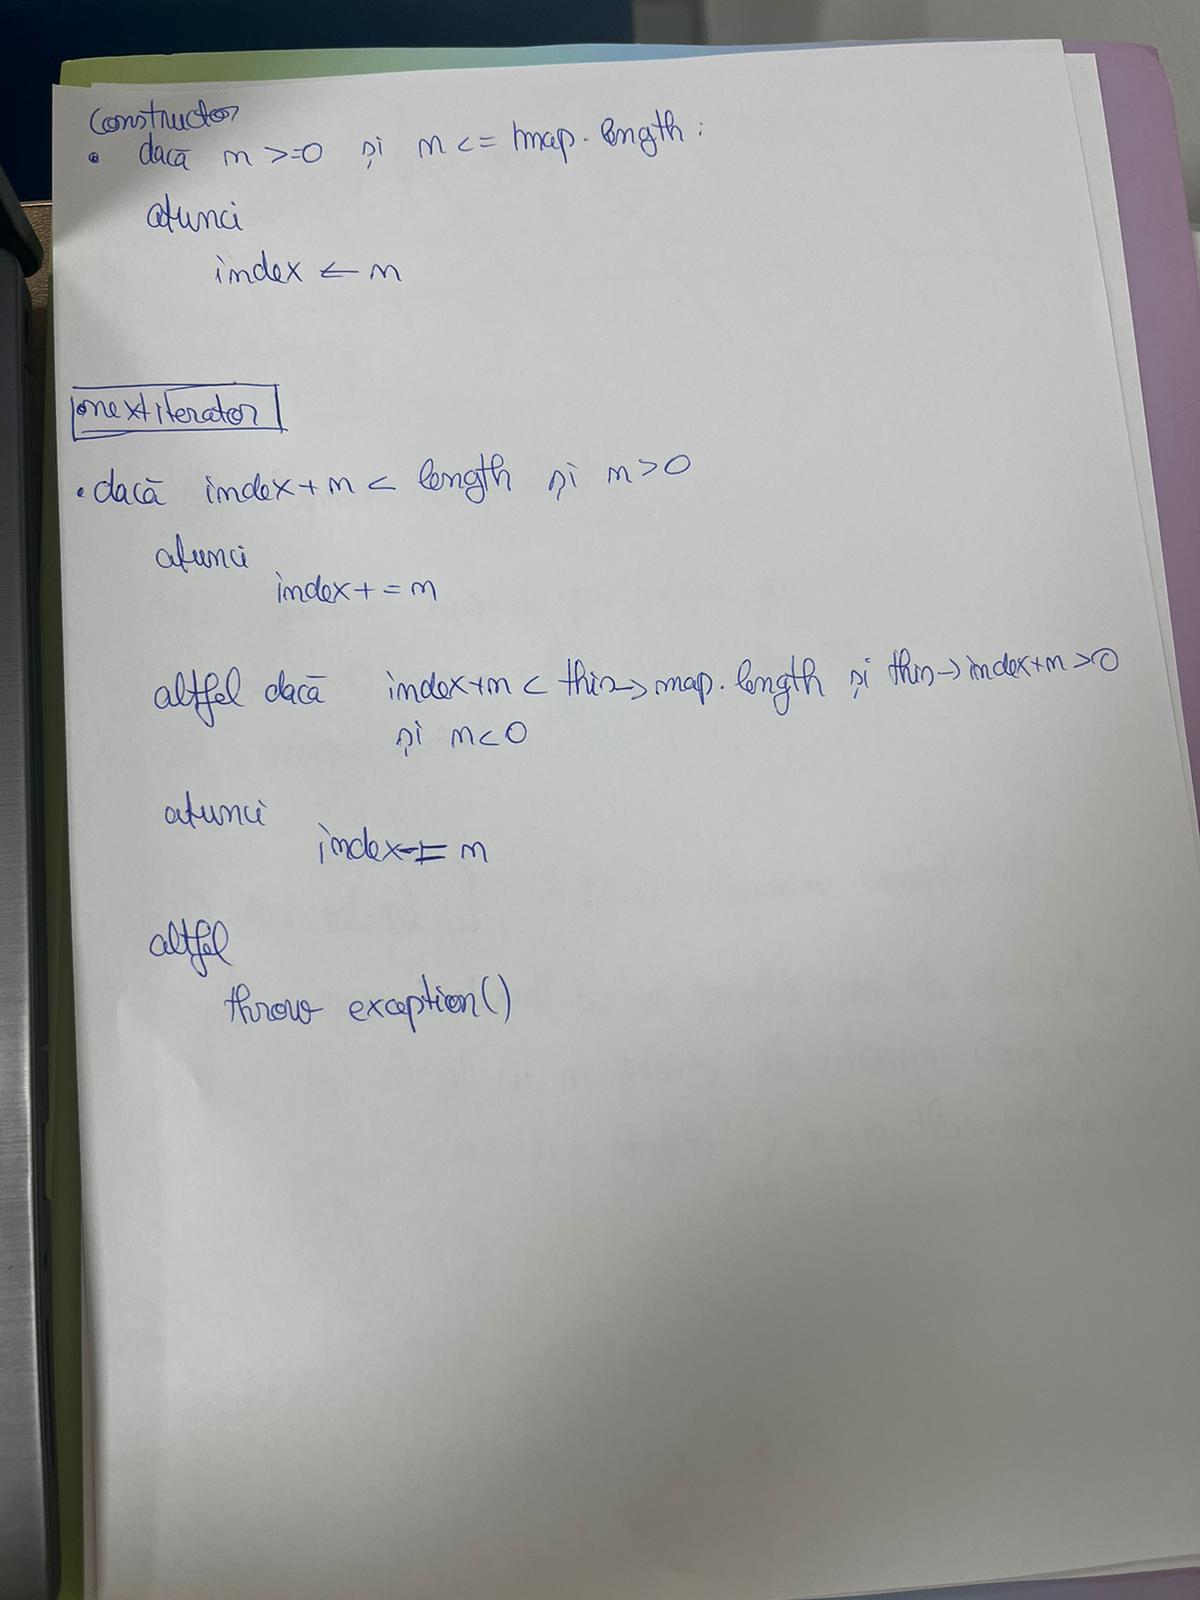 Constructor
• dacă n >=0 și n <= map.length:
atunci
index ← n
nextiterator
• dacă index+n < length și n>0
atunci
index+=n
altfel dacă index+n < this→map.length și this→index+n>0
și n<0
atunci
index-=n
altfel
throw exception()